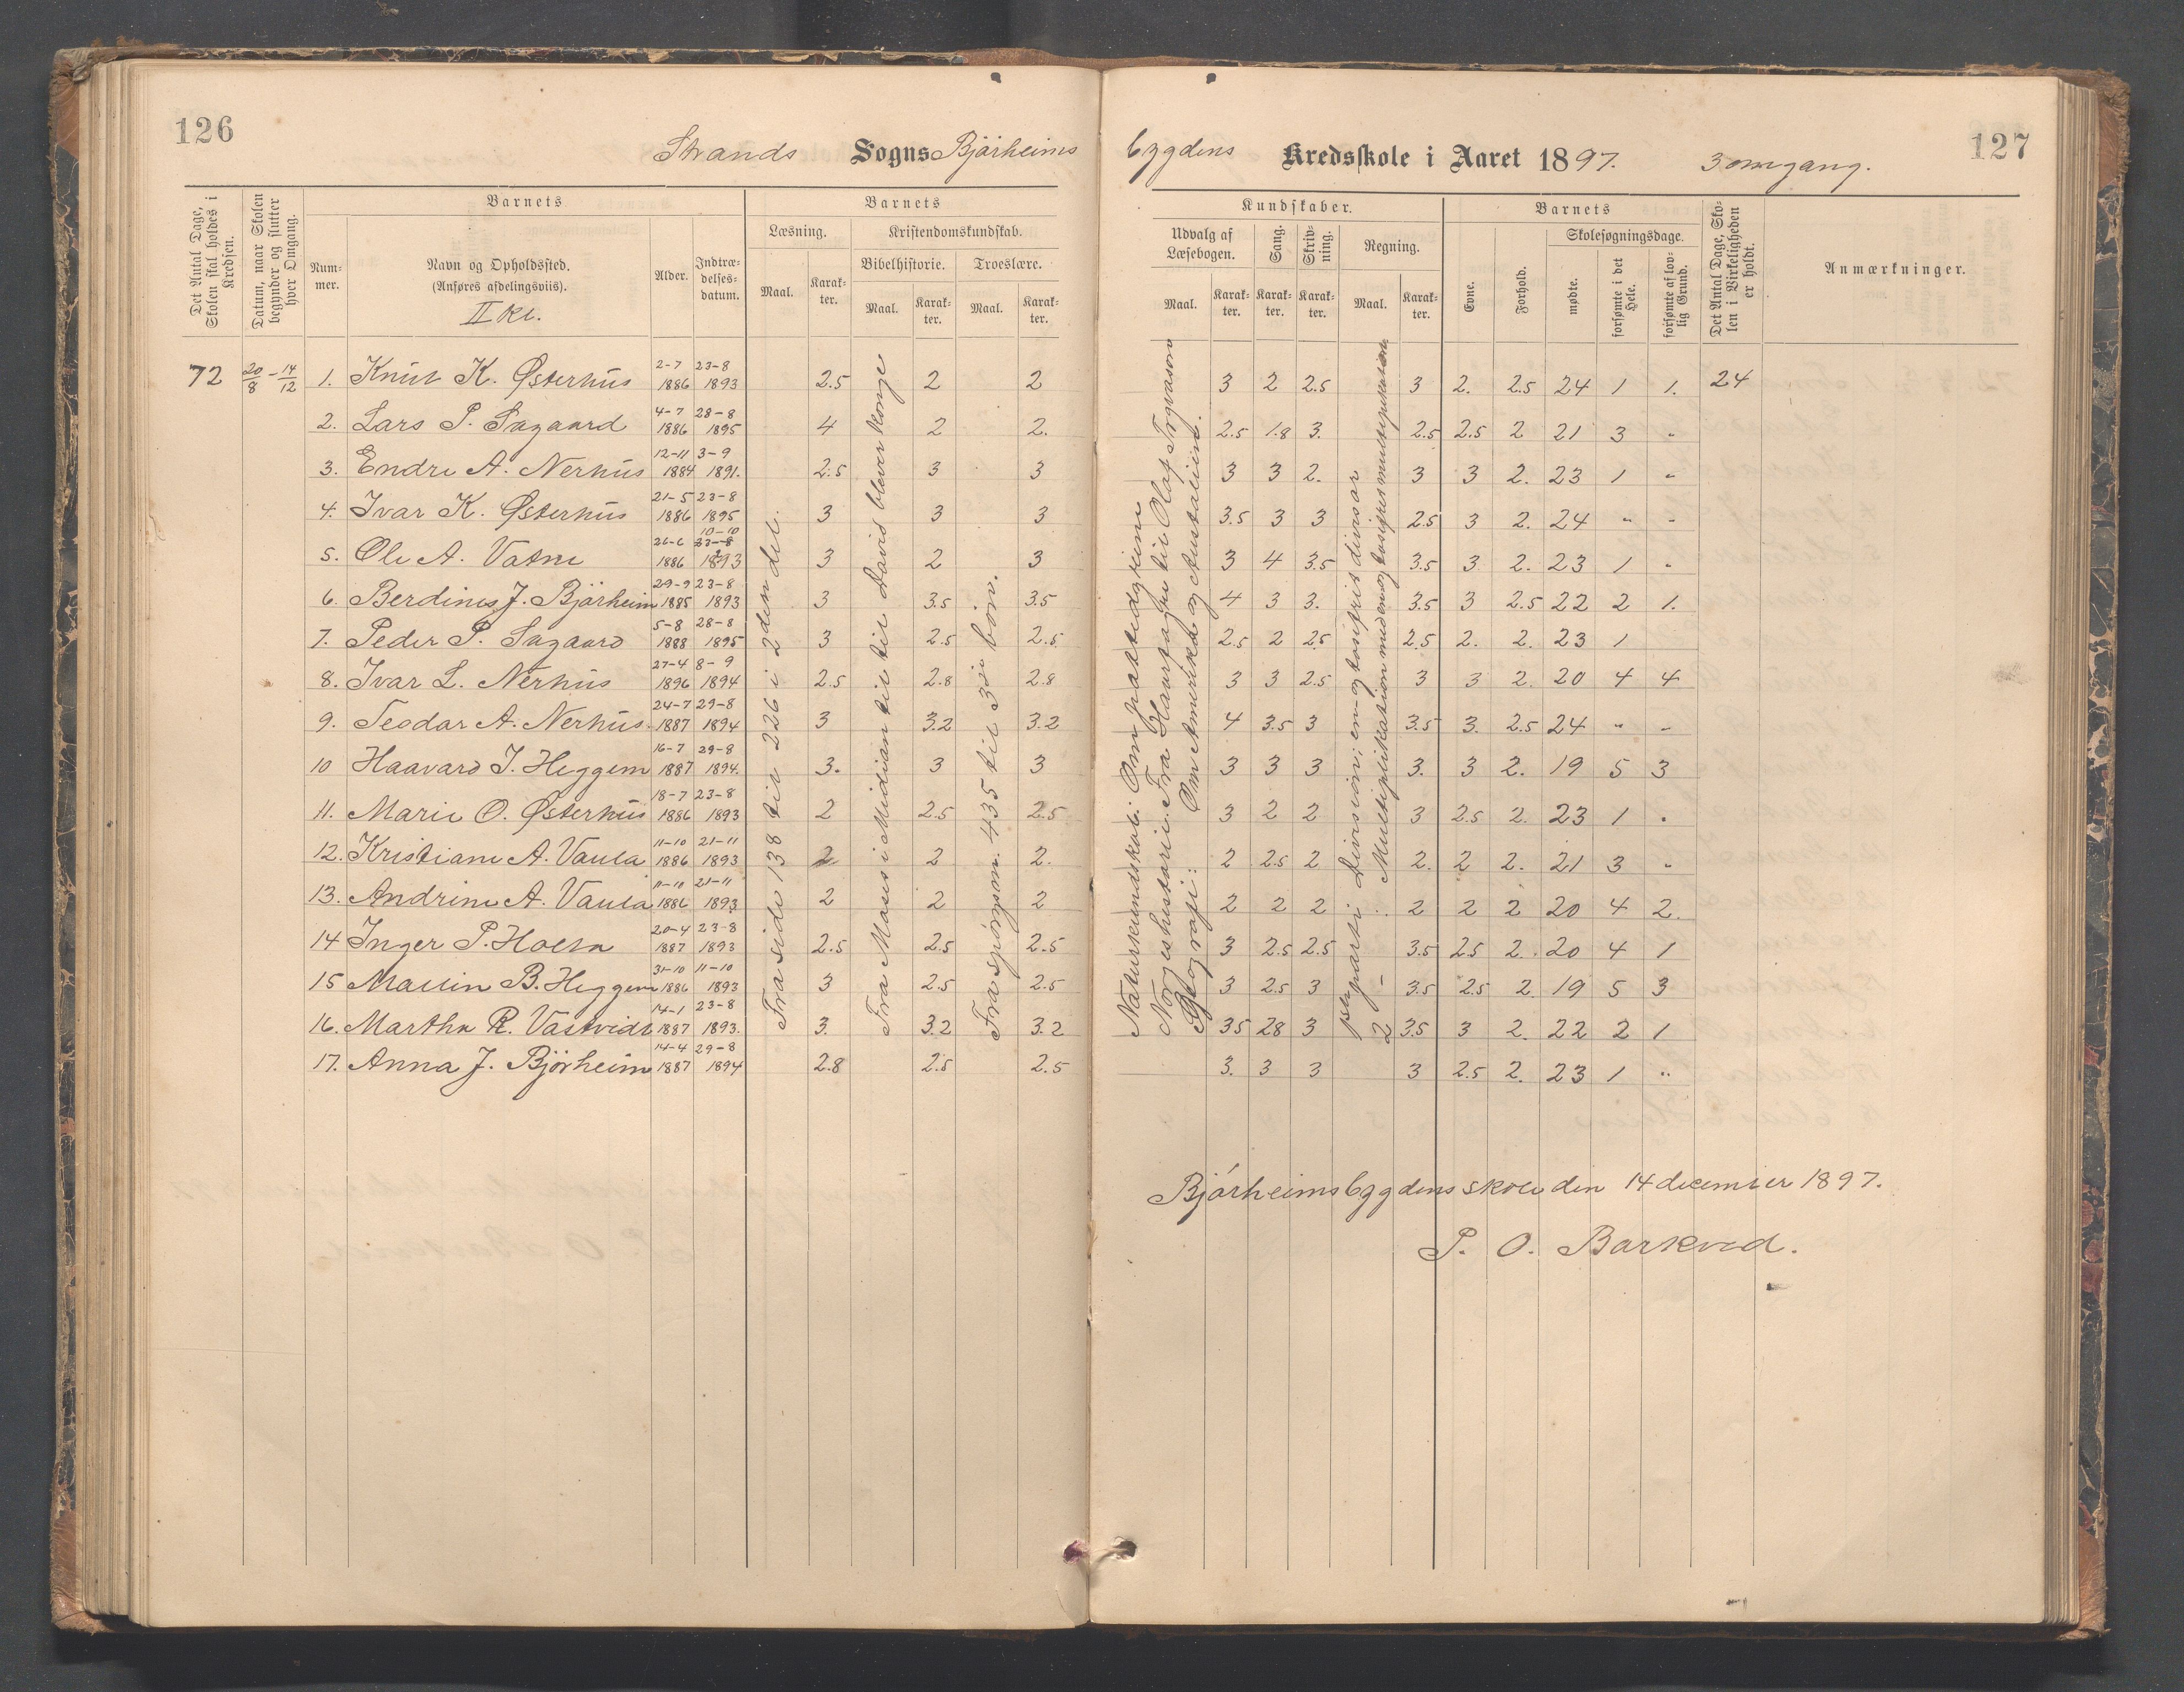 126
Strands Sogns Bjårheims
bygdens Kredsskole i Aaret 1897. 3 omgang.
127
Det Antal Dage, Skolen skal holdes i Kredsen.
Datum, naar Skolen begynder og slutter hver Omgang.
Barnets
Num-mer.
Navn og Opholdssted.
(Anføres afdelingsviis).
II kl.
Alder.
Indtræ-delses-datum.
Barnets
Læsning.
Maal.
Karak-ter.
Kristendomskundskab.
Bibelhistorie.
Maal.
Karak-ter.
Troeslære.
Maal.
Karak-ter.
Kundskaber.
Udvalg af Læsebogen.
Maal.
Karak-ter.
Sang.
Karak-ter.
Skriv-ning.
Karak-ter.
Regning.
Maal.
Karak-ter.
Barnets
Evne.
Forhold.
Skolesøgningsdage.
mødte.
forsømte i det Hele.
forsømte af lov-lig Grund.
Det Antal Dage, Sko-len i Virkeligheden er holdt.
Anmærkninger.
72 20/8 - 14/12 1. Knut K. Østerhus 2-7 1886 23-8 1893 2.5 2 2 3 2 2.5 3 2. 2.5 24 1 1. 24
2. Lars P. Sagaard 4-7 1886 28-8 1895 4 2 2. 2.5 1.8 3. 2.5 2.5 2 21 3 "
3. Endre A. Nerhus 12-11 1884 3-9 1891. 2.5 3 3 3 3 2. 3 3 2. 23 1 "
4. Ivar K. Østerhus 21-5 1886 23-8 1895 3 3 3 3.5 3 3 2.5 3 2. 24 " "
5. Ole A. Vatne 26-6 1886 10-10 23-8 1893 3 2 3 3 4 3.5 3.5 3 2. 23 1 "
6. Berdines J. Bjårheim 29-9 1885 23-8 1893 3 3.5 3.5 4 3 3. 3.5 3 2.5 22 2 1.
7. Peder P. Sagaard 5-8 1888 28-8 1895 3 2.5 2.5 2.5 2 2.5 2.5 2. 2. 23 1
8. Ivar L. Nerhus 27-4 1896 8-9 1894 2.5 2.8 2.8 3 3 2.5 3 3 2. 20 4 4
9. Teodar A. Nerhus. 24-7 1887 29-8 1894 3 3.2 3.2 4 3.5 3 3.5 3. 2.5 24 " "
10 Haavard J. Heggem 16-7 1887 29-8 1894. 3. 3 3 3 3 3 3. 3 2. 19 5 3
11. Marie O. Østerhus 18-7 1886 23-8 1893 2 2.5 2.5 3 2 2 3 2.5 2. 23 1 "
12. Kristiane A. Vaula 11-10 1886 21-11 1893 2 2 2. 2 2.5 2 2. 2 2. 21 3 "
13. Andrine A. Vaula 11-10 1886 21-11 1893 2 2 2 2 2 2 2 2 2 20 4 2.
14 Inger P. Holta 20-4 1887 23-8 1893 2.5 2.5 2.5 3 2.5 2.5 3.5 2.5 2. 20 4 1
15 Mallin B. Heggem 31-10 1886 11-10 1893 3 2.5 2.5 3 2.5 3 3.5 2.5 2 19 5 3
16. Martha R. Vastveidt 14-1 1887 23-8 1893. 3. 3.2 3.2 3.5 2.8 3 3.5 3 2. 22 2 1
17. Anna J. Bjørheim 14-4 1887 29-8 1894 2.8 2.5 2.5 3. 3 3 3 2.5 2. 23 1 "
Fra side 138 til 226 i 2den del.
Fra Moses i Midian til til David blever konge
Fra spörgsm. 435 til 3die bön.
Naturkundskab: Om pattedyrene
Norgeshistorie. Fra Haarfagre til Olaf Trygvason
Geografi: Om Amerika og Australien.
1ste parti Division: en- og tosifret divisor
2 - Multiplikation med en og tosifres multiplikation
Bjårheimsbygdens skole den 14 december 1897.
P. O. Barkved.